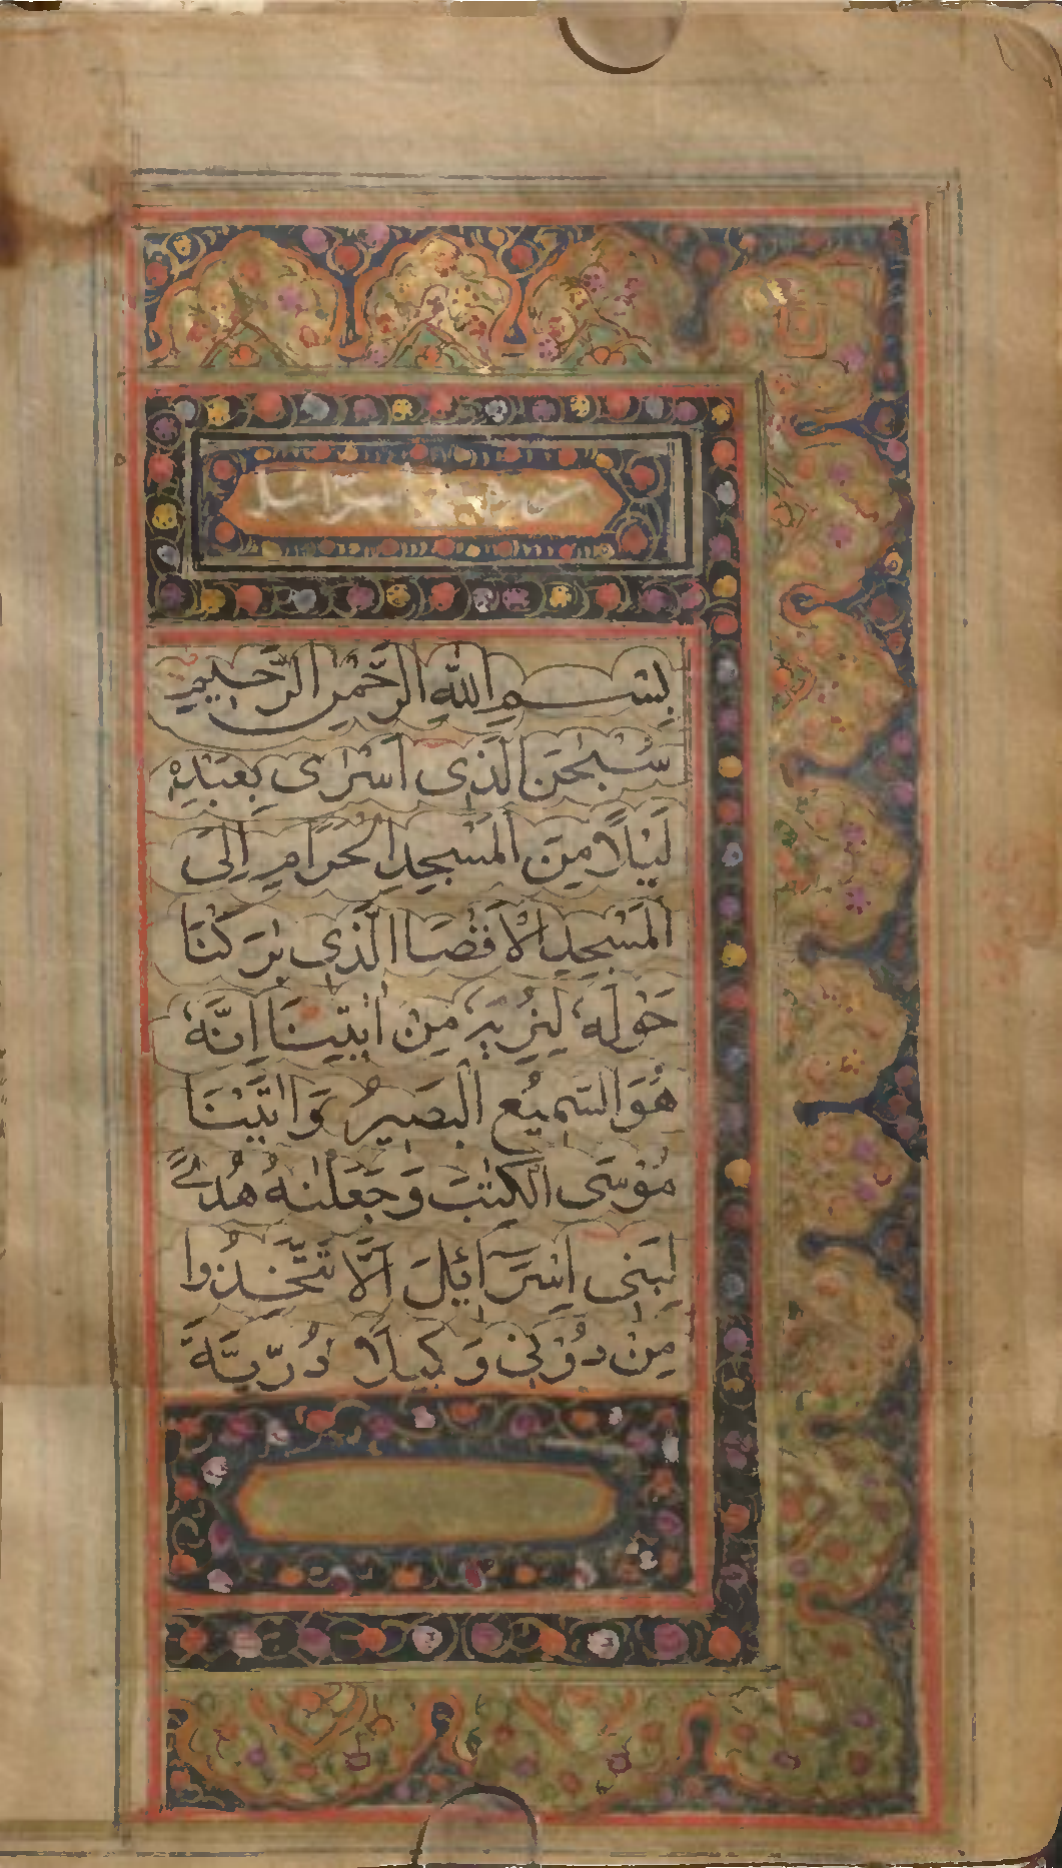 بِسْمِ اللّٰهِ الرَّحْمٰنِ الرَّحِيمِ
سُبْحٰنَ الَّذِى اَسْرٰى بِعَبْدِهٖ
لَيْلًا مِنَ الْمَسْجِدِ الْحَرَامِ اِلَى
الْمَسْجِدِ الْاَقْصَا الَّذِى بٰرَكْنَا
حَوْلَهُ لِنُرِيَهُ مِنْ اٰيٰتِنَا اِنَّهُ
هُوَ السَّمِيْعُ الْبَصِيْرُ وَاٰتَيْنَا
مُوْسَى الْكِتٰبَ وَجَعَلْنٰهُ هُدًى
لِبَنِى اِسْرَآئِلَ اَلَّا تَتَّخِذُوا
مِنْ دُوْنِى وَكِيلًا ذُرِّيَّةَ